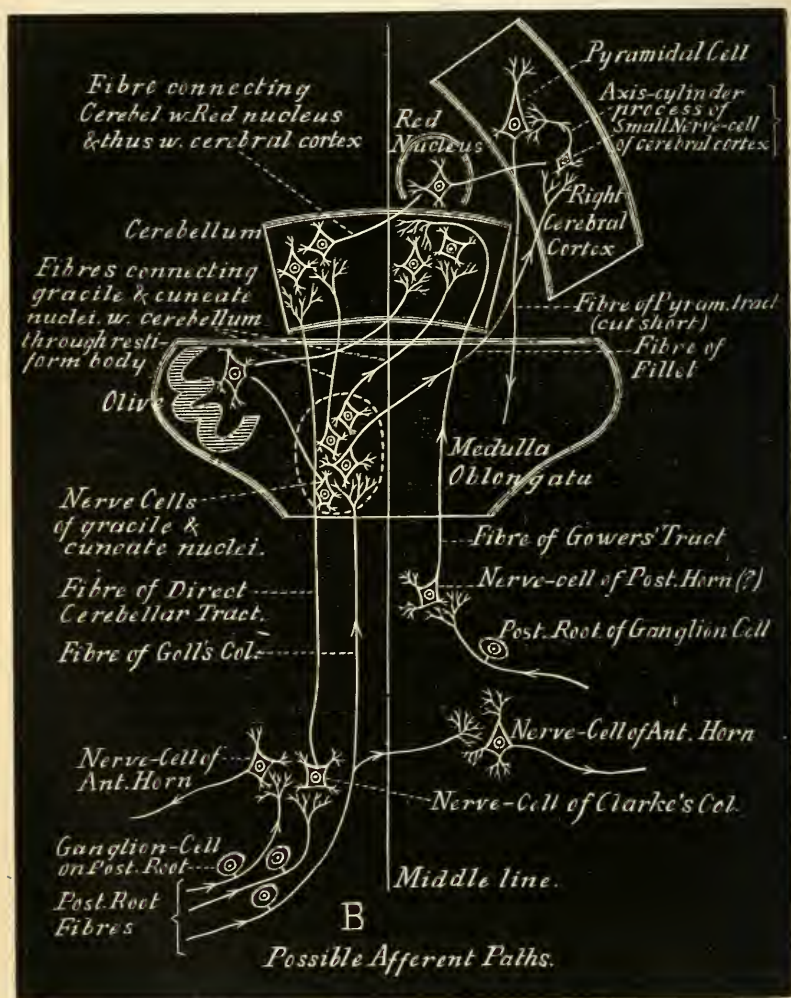 Pyramidal Cell
Fibre connecting
Cerebel w. Red nucleus
& thus w. cerebral cortex
Axis-cylinder
process of
Small Nerve-cell
of cerebral cortex
Red
Nucleus
Right
Cerebral
Cortex
Cerebellum
Fibres connecting
gracile & cuneate
nuclei. w. cerebellum
through resti-
form body
Fibre of Pyram. tract
(cut short)
Fibre of
Fillet
Olive
Medulla
Oblongata
Nerve Cells
of gracile &
cuneate nuclei.
Fibre of Gowers' Tract
Nerve-cell of Post. Horn (?)
Fibre of Direct
Cerebellar Tract.
Post. Root of Ganglion Cell
Fibre of Goll's Col.
Nerve-Cell of Ant. Horn
Nerve-Cell of
Ant. Horn
Nerve-Cell of Clarke's Col.
Ganglion-Cell
on Post. Root
Middle line.
Post. Root
Fibres
B
Possible Afferent Paths.